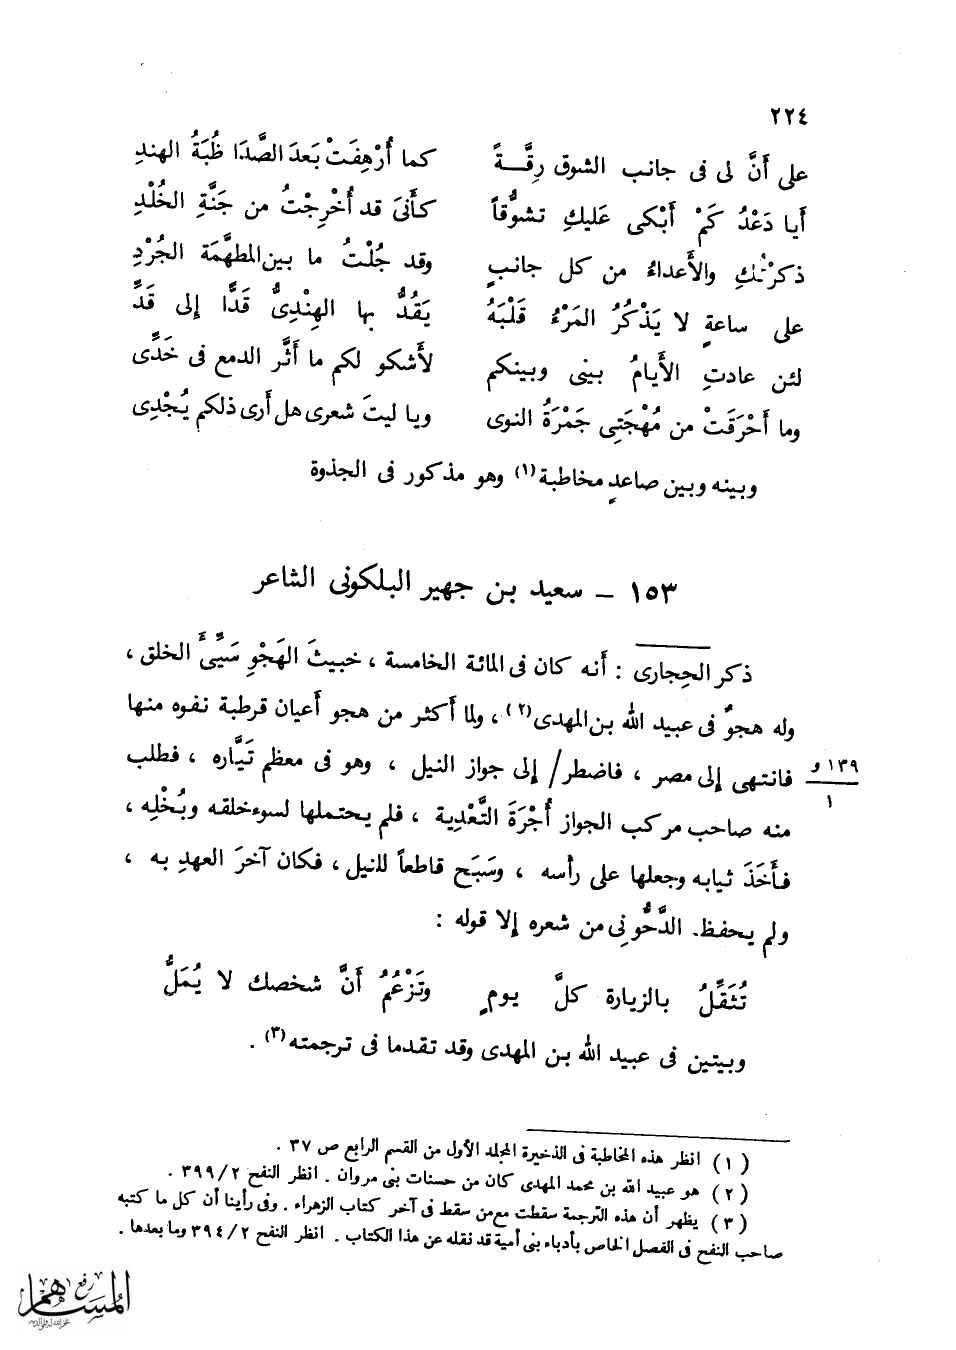 ٢٢٤
على أَنَّ لى فى جانب الشوق رِقَّــةً كما أُرْهِفَتْ بَعدَ الصَّدَا ظُبَةُ الهندِ
أيا دَعْدُ كَمْ أَبْكى عَليكِ تشوُّقاً كأنىَ قد أُخْرِجْتُ من جَنَّةِ الخُلْدِ
ذكرْتُكِ والأَعداءُ من كل جانبٍ وقد جُلْتُ ما بين المطهَّمَة الجُرْدِ
على ساعةٍ لا يَذْكُرُ المَرْءُ قَلْبَهُ يَقُدُّ بها الهِنْدِىُّ قَدًّا إلى قَدِّ
لئن عادتِ الأَيامُ بينى وبينكم لأشكو لكم ما أثَّر الدمع فى خَدِّى
وما أَحْرَقَتْ من مُهْجَتِى جَمْرَةُ النوى ويا ليتَ شعرى هل أرى ذلكم يُجْدِى
وبينه وبين صاعدٍ مخاطبة (١) وهو مذكور فى الجذوة
١٥٣ – سعيد بن جهير البلكونى الشاعر
ذكر الحِجارى : أنه كان فى المائة الخامسة ، خبيثَ الهَجْوِ سَيِّئَ الخلق ،
وله هجوٌ فى عبيد الله بن المهدى (٢) ، ولما أكثر من هجو أعيان قرطبة نفوه منها
فانتهى إلى مصر ، فاضطر/ إلى جواز النيل ، وهو فى معظم تَيَّاره ، فطلب
١٣٩ و
١
منه صاحب مركب الجواز أُجْرَةَ التَّعْدِية ، فلم يحتملها لسوء خلقه وبُخْلِه ،
فأَخَذَ ثيابه وجعلها على رأسه ، وسَبَح قاطعاً للنيل ، فكان آخرَ العهدِ به ،
ولم يحفظ. الدَّحُّونى من شعره إلا قوله :
تُثَقِّلُ بالزيارة كلَّ يومٍ وتَزْعُمُ أَنَّ شخصك لا يُمَلُّ
وبيتين فى عبيد الله بن المهدى وقد تقدما فى ترجمته (٣) .
( ١ ) انظر هذه المخاطبة فى الذخيرة المجلد الأول من القسم الرابع ص ٣٧ .
( ٢ ) هو عبيد الله بن محمد المهدى كان من حسنات بنى مروان . انظر النفح ٢ / ٣٩٩ .
( ٣ ) يظهر أن هذه الترجمة سقطت مع من سقط فى آخر كتاب الزهراء . وفى رأينا أن كل ما كتبه
صاحب النفح فى الفصل الخاص بأدباء بنى أمية قد نقله عن هذا الكتاب . انظر النفح ٢ / ٣٩٤ وما بعدها .
رفع
المساهم